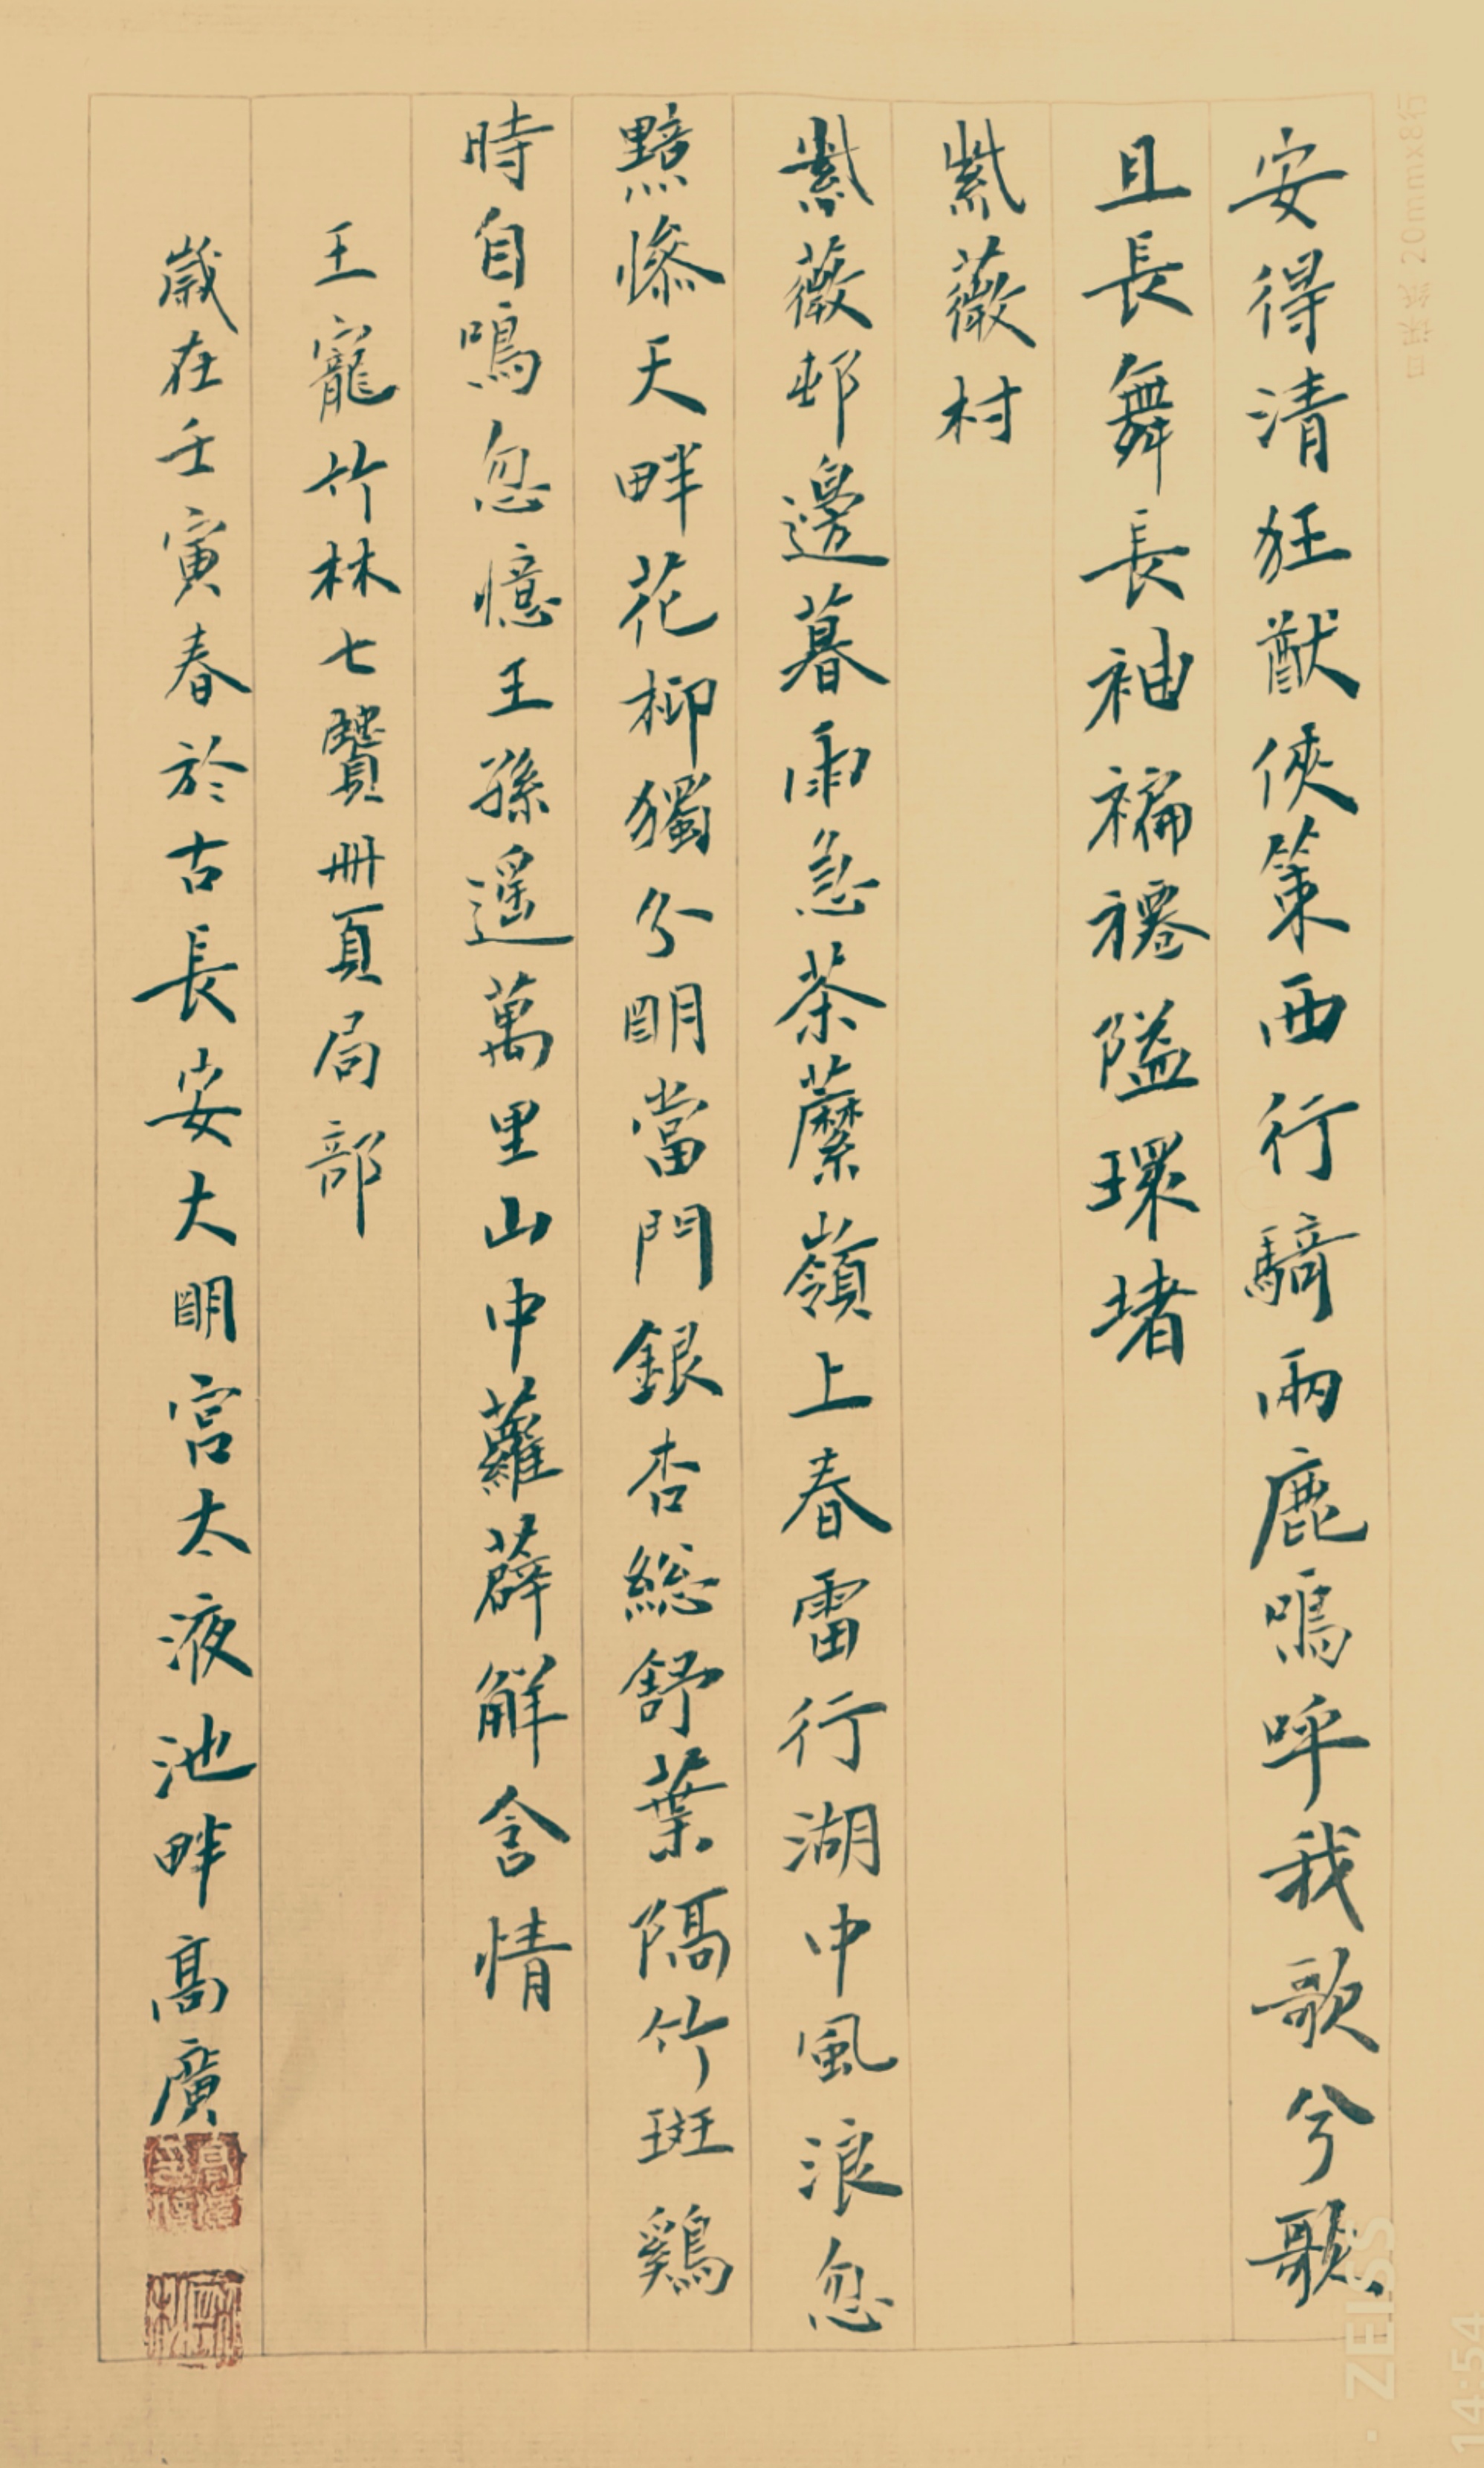 安得清狂猷俠策西行騎兩鹿鳴呼我歌兮歌
且長舞長袖褊褼隘環堵
紫薇村
紫薇邨邊暮雨急荼蘼嶺上春雷行湖中風浪忽
黯慘天畔花柳獨分明當門銀杏総舒葉隔竹斑鷄
時自鳴忽憶王孫遥萬里山中蘿薜解含情
王寵竹林七賢冊頁局部
歲在壬寅春於古長安大明宮太液池畔高廣
日課紙 20mmx8行
· ZEISS
14:54